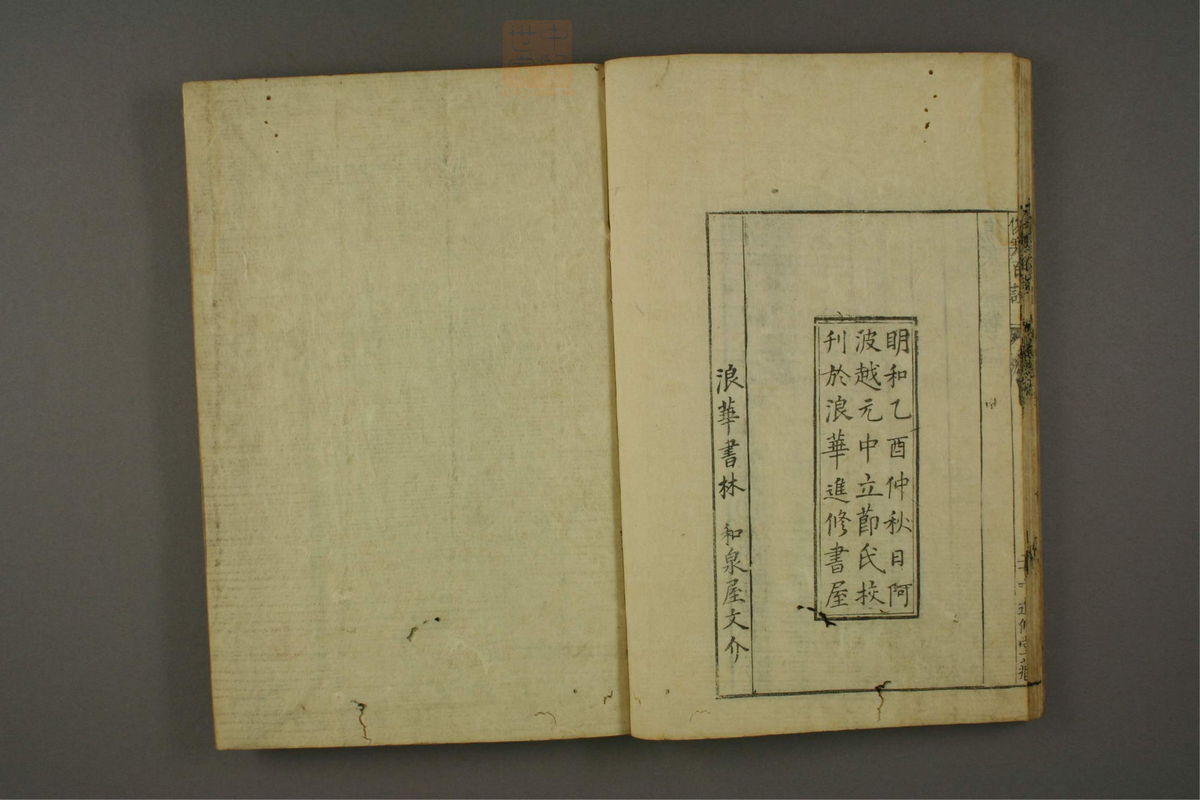 明和乙酉仲秋日阿
波越元中立節氏校
刊於浪華進修書屋
浪華書林 和泉屋文介